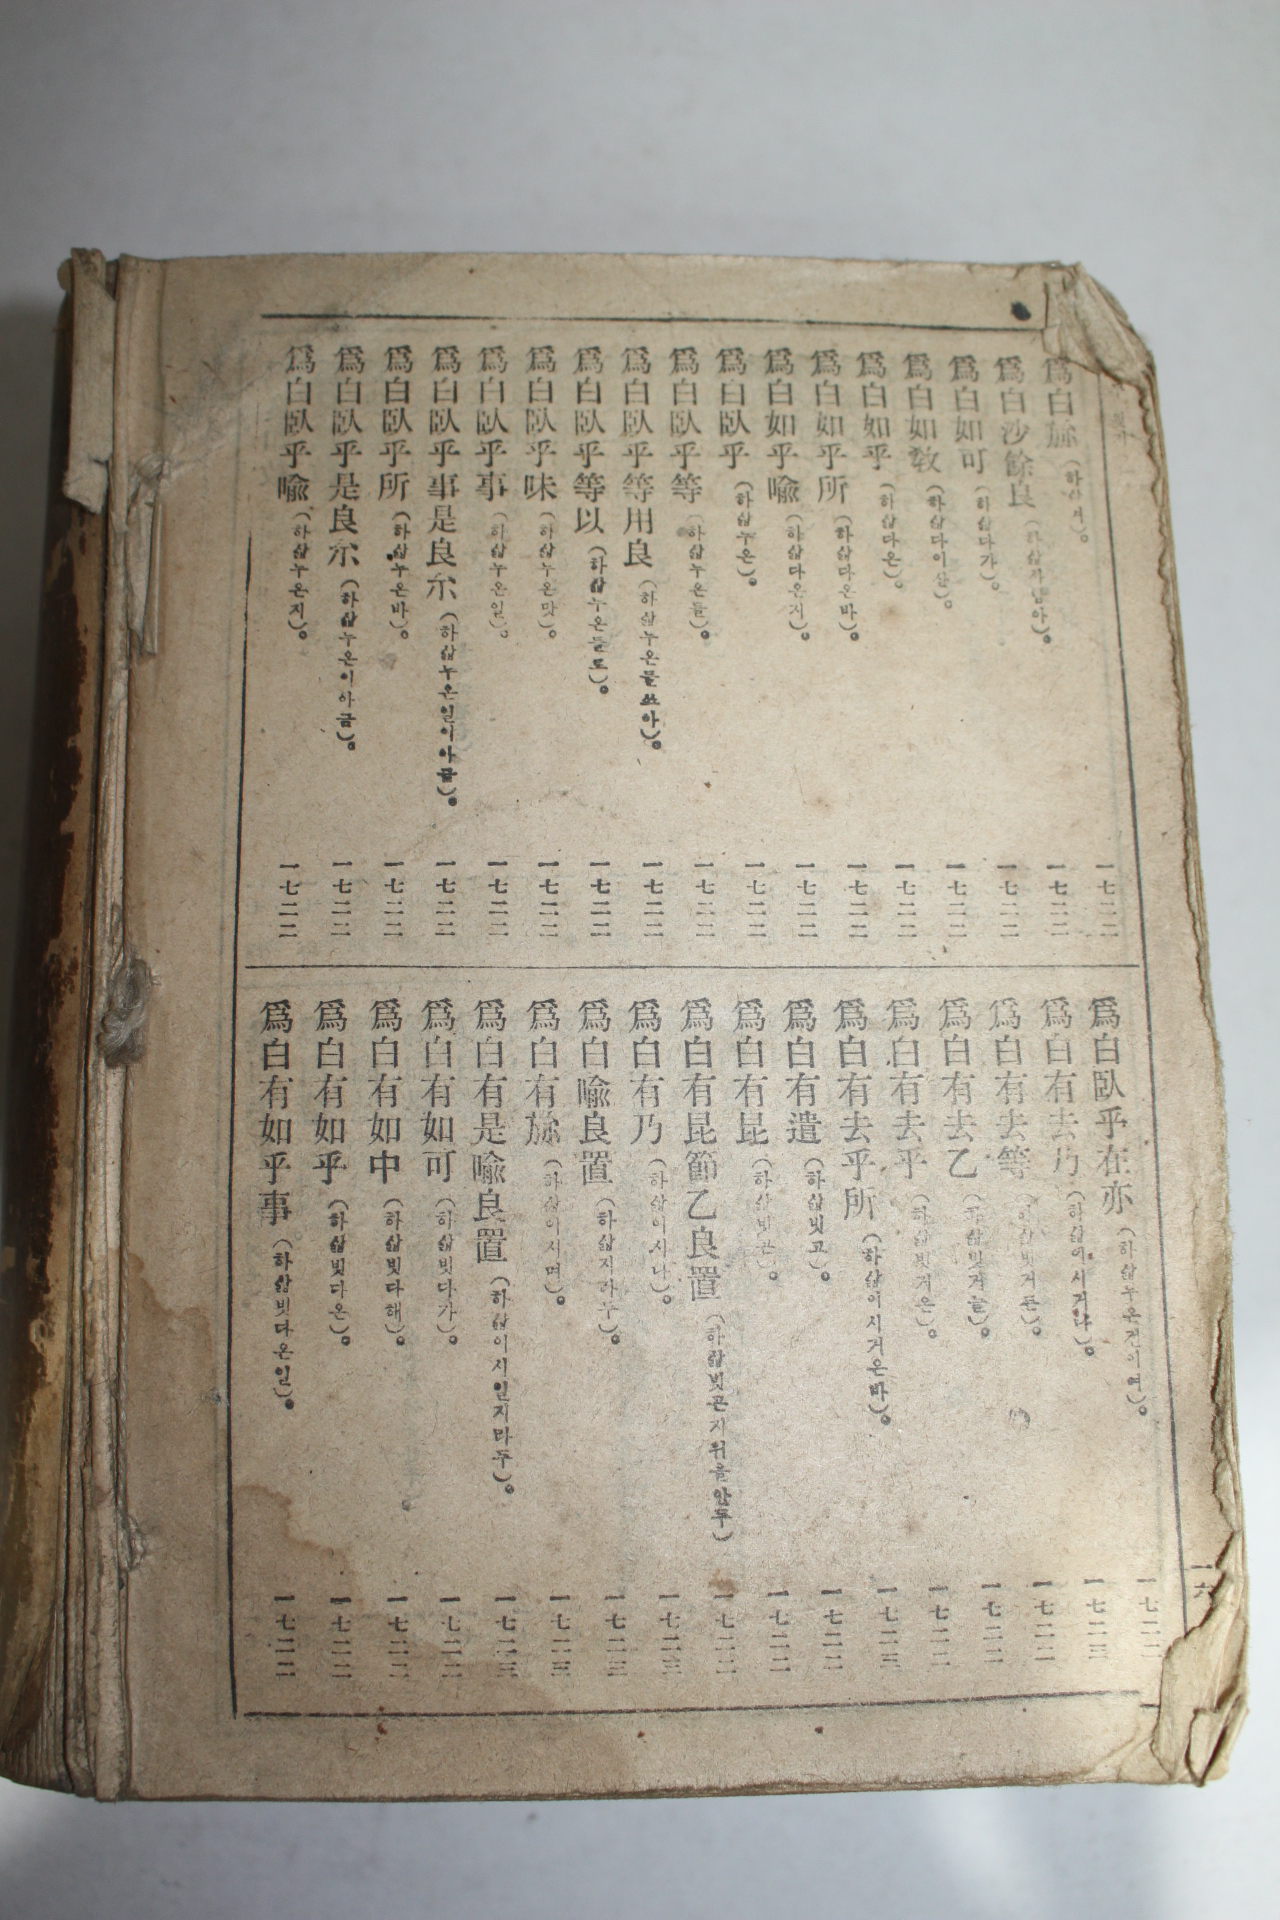 爲白旀(하삷며)。 一七二二
爲白沙餘良(하삷사남아)。 一七二二
爲白如可(하삷다가)。 一七二二
爲白如敎(하삷다이샨)。 一七二二
爲白如乎(하삷다온)。 一七二二
爲白如乎所(하삷다온바)。 一七二二
爲白如乎喩(하삷다온지)。 一七二二
爲白臥乎(하삷누온)。 一七二二
爲白臥乎等(하삷누온들)。 一七二二
爲白臥乎等用良(하삷누온들쓰아)。 一七二二
爲白臥乎等以(하삷누온들로)。 一七二二
爲白臥乎味(하삷누온맛)。 一七二二
爲白臥乎事(하삷누온일)。 一七二二
爲白臥乎事是良尒(하삷누온일이아금)。 一七二二
爲白臥乎所(하삷누온바)。 一七二二
爲白臥乎是良尒(하삷누온이아금)。 一七二二
爲白臥乎喩(하삷누온지)。 一七二二
爲白臥乎在亦(하삷누온견이여)。 一七二二
爲白有去乃(하삷이시거나)。 一七二三
爲白有去等(하삷빗거든)。 一七二二
爲白有去乙(하삷빗거늘)。 一七二二
爲白有去乎(하삷빗거온)。 一七二二
爲白有去乎所(하삷이시거온바)。 一七二三
爲白有遣(하삷빗고)。 一七二二
爲白有昆(하삷빗곤)。 一七二二
爲白有昆節乙良置(하삷빗곤지위을안두) 一七二二
爲白有乃(하삷이시나)。 一七二三
爲白喩良置(하삷지라두)。 一七二三
爲白有旀(하삷이시며)。 一七二三
爲白有是喩良置(하삷이시인지라두)。 一七二三
爲白有如可(하삷빗다가)。 一七二二
爲白有如中(하삷빗다해)。 一七二二
爲白有如乎(하삷빗다온)。 一七二二
爲白有如乎事(하삷빗다온일)。 一七二二
一六